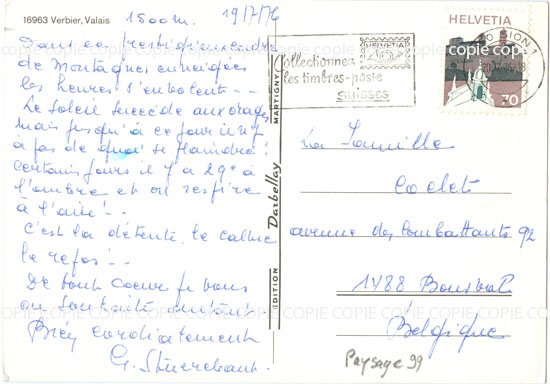 16963 Verbier, Valais
1500m. 19/7/76
Dans ce prestigieux cadre
de Montagnes enneigées
les heures s'envolent --
Le Soleil succède aux orages
Mais jusqu'à ce jour il n'y
a pas de quoi se plaindre !
Certains jours il y a 29° à
l'ombre et on respire
à l'aise ! --
C'est la détente, le calme
le repos ! --
De tout Coeur je vous
en souhaite autant --
Bien cordialement
G.
EDITION Darbellay MARTIGNY
Collectionnez
les timbres-poste
suisses
HELVETIA
SION 1
HELVETIA
70
La Famille
Coclet
avenue des Combattants 92
1488 Bousval
Belgique
Paysage 99
COPIE COPIE COPIE COPIE COPIE COPIE